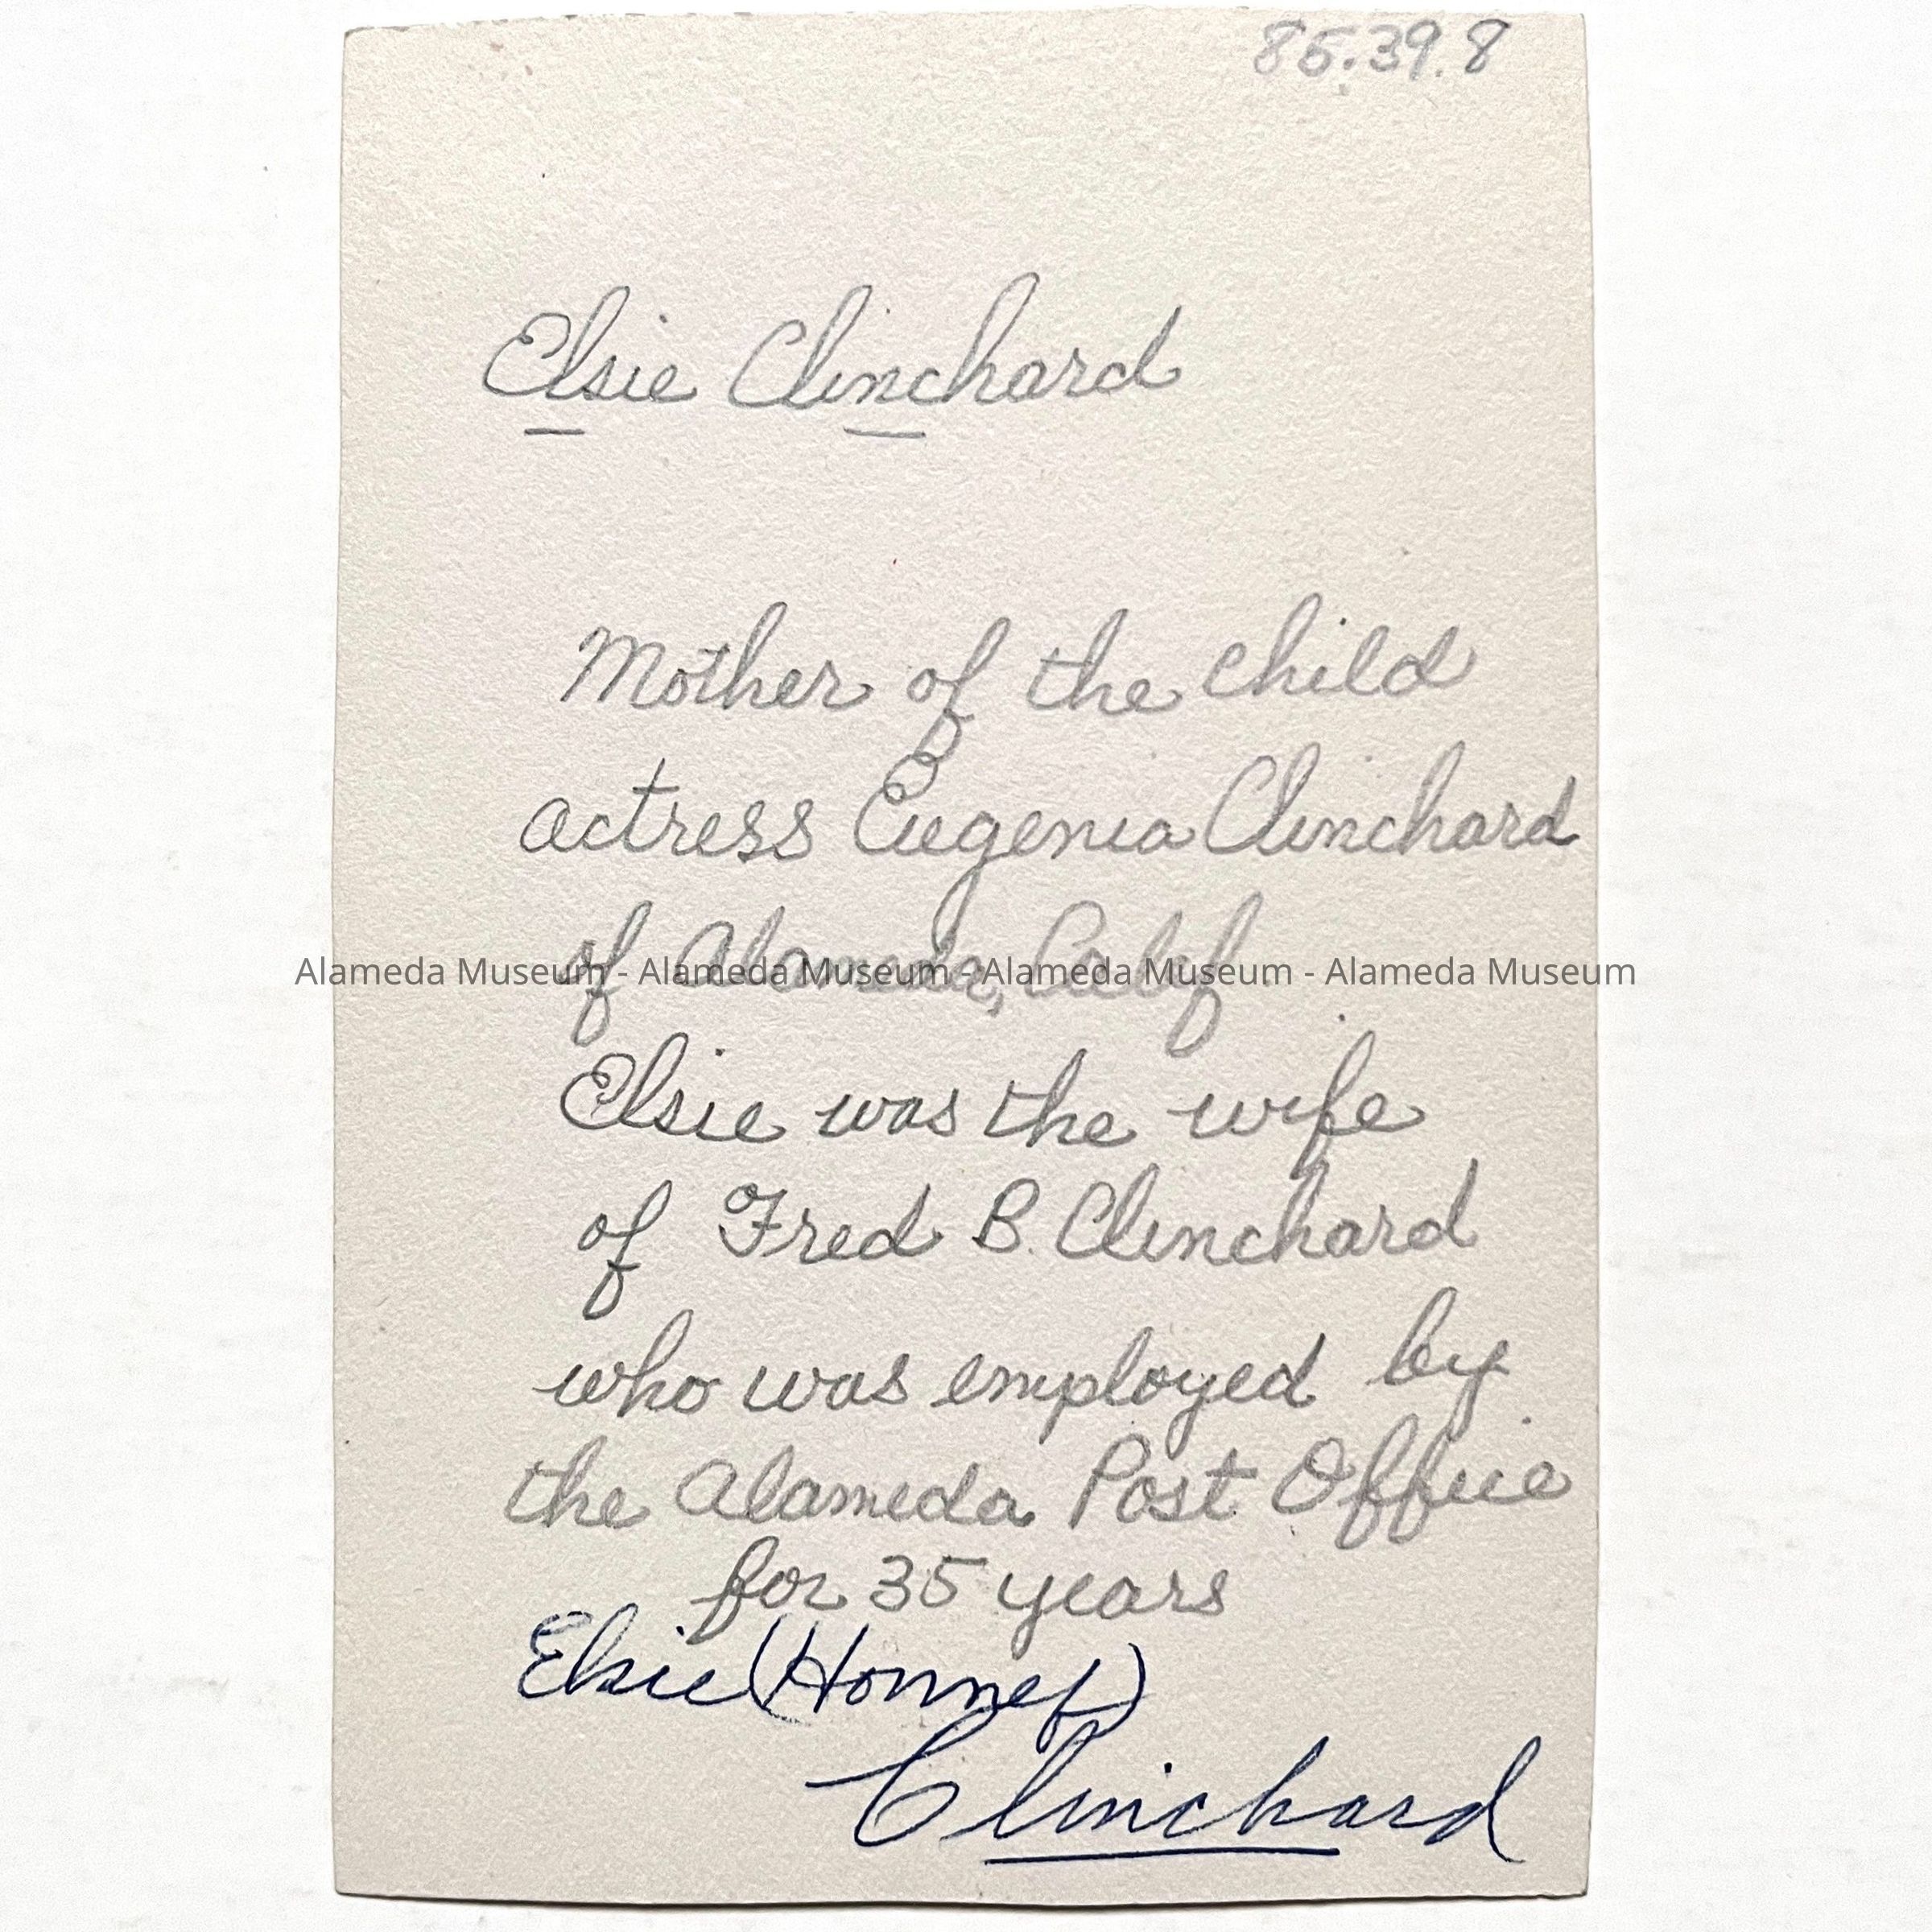 85.39.8
Elsie Clinchard
Mother of the child
actress Eugenia Clinchard
of Alameda, Calif.
Alameda Museum - Alameda Museum - Alameda Museum - Alameda Museum
Elsie was the wife
of Fred B. Clinchard
who was employed by
the Alameda Post Office
for 35 years
Elsie (Honnef)
Clinchard